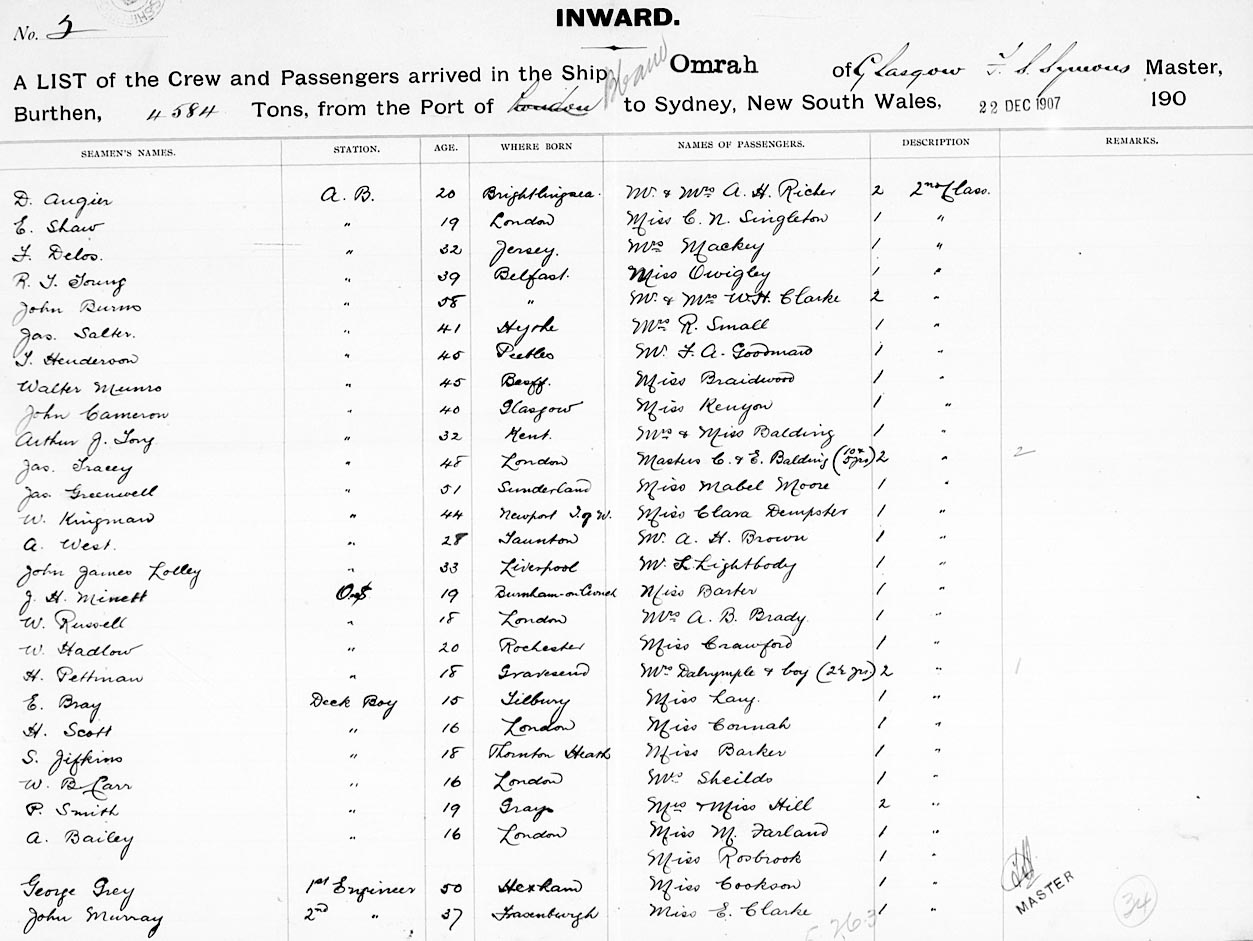 No. 5
INWARD.
A LIST of the Crew and Passengers arrived in the Ship Omrah of Glasgow F. S. Symons Master,
Burthen, 4584 Tons, from the Port of London to Sydney, New South Wales, 22 DEC 1907 190
SEAMEN'S NAMES. STATION. AGE. WHERE BORN NAMES OF PASSENGERS. DESCRIPTION REMARKS.
D. Augier A. B. 20 Brightlingsea. Mr. & Mrs A. H. Richer 2 2nd Class.
E. Shaw " 19 London Miss C. N. Singleton 1 "
F. Delos. " 32 Jersey. Mrs Mackey 1 "
R. T. Young " 39 Belfast. Miss Owigley 1 "
John Burns " 58 " Mr. & Mrs W.H. Clarke 2 "
Jas. Salter. " 41 Hythe Mrs R. Small 1 "
T. Henderson " 45 Peebles Mr. F. A. Goodman 1 "
Walter Munro " 45 Banff. Miss Braidwood 1 "
John Cameron " 40 Glasgow Miss Kenyon 1 "
Arthur J. Tong " 32 Kent. Mrs & Miss Balding 1 "
Jas. Tracey " 48 London Masters C. & E. Balding (10 & 5 yrs) 2 " 2
Jas. Greenwell " 51 Sunderland Miss Mabel Moore 1 "
W. Kingman " 44 Newport I. of W. Miss Clara Dempster 1 "
A. West. " 28 Taunton Mr. A. H. Brown 1 "
John James Lolley " 33 Liverpool Mr. L. Lightbody 1 "
J. H. Minett O.S 19 Burnham-on-Crouch Miss Barter 1 "
W. Russell " 18 London Mrs A. B. Brady 1 "
W. Hadlow " 20 Rochester Miss Crawford 1 "
H. Pettman " 18 Gravesend Mrs Dalrymple & boy (2½ yrs.) 2 " 1
E. Bray Deck Boy 15 Tilbury Miss Lang. 1 "
H. Scott " 16 London Miss Connah 1 "
S. Jifkins " 18 Thornton Heath Miss Barker 1 "
W. B. Carr " 16 London Mrs Sheilds 1 "
P. Smith " 19 Grays Mrs & Miss Hill 2 "
A. Bailey " 16 London Miss M. Farland 1 "
Miss Rosbrook 1 "
George Grey 1st Engineer 50 Hexham Miss Cookson 1 "
John Murray 2nd " 37 Frasenburgh Miss E. Clarke 1 "
MASTER
34